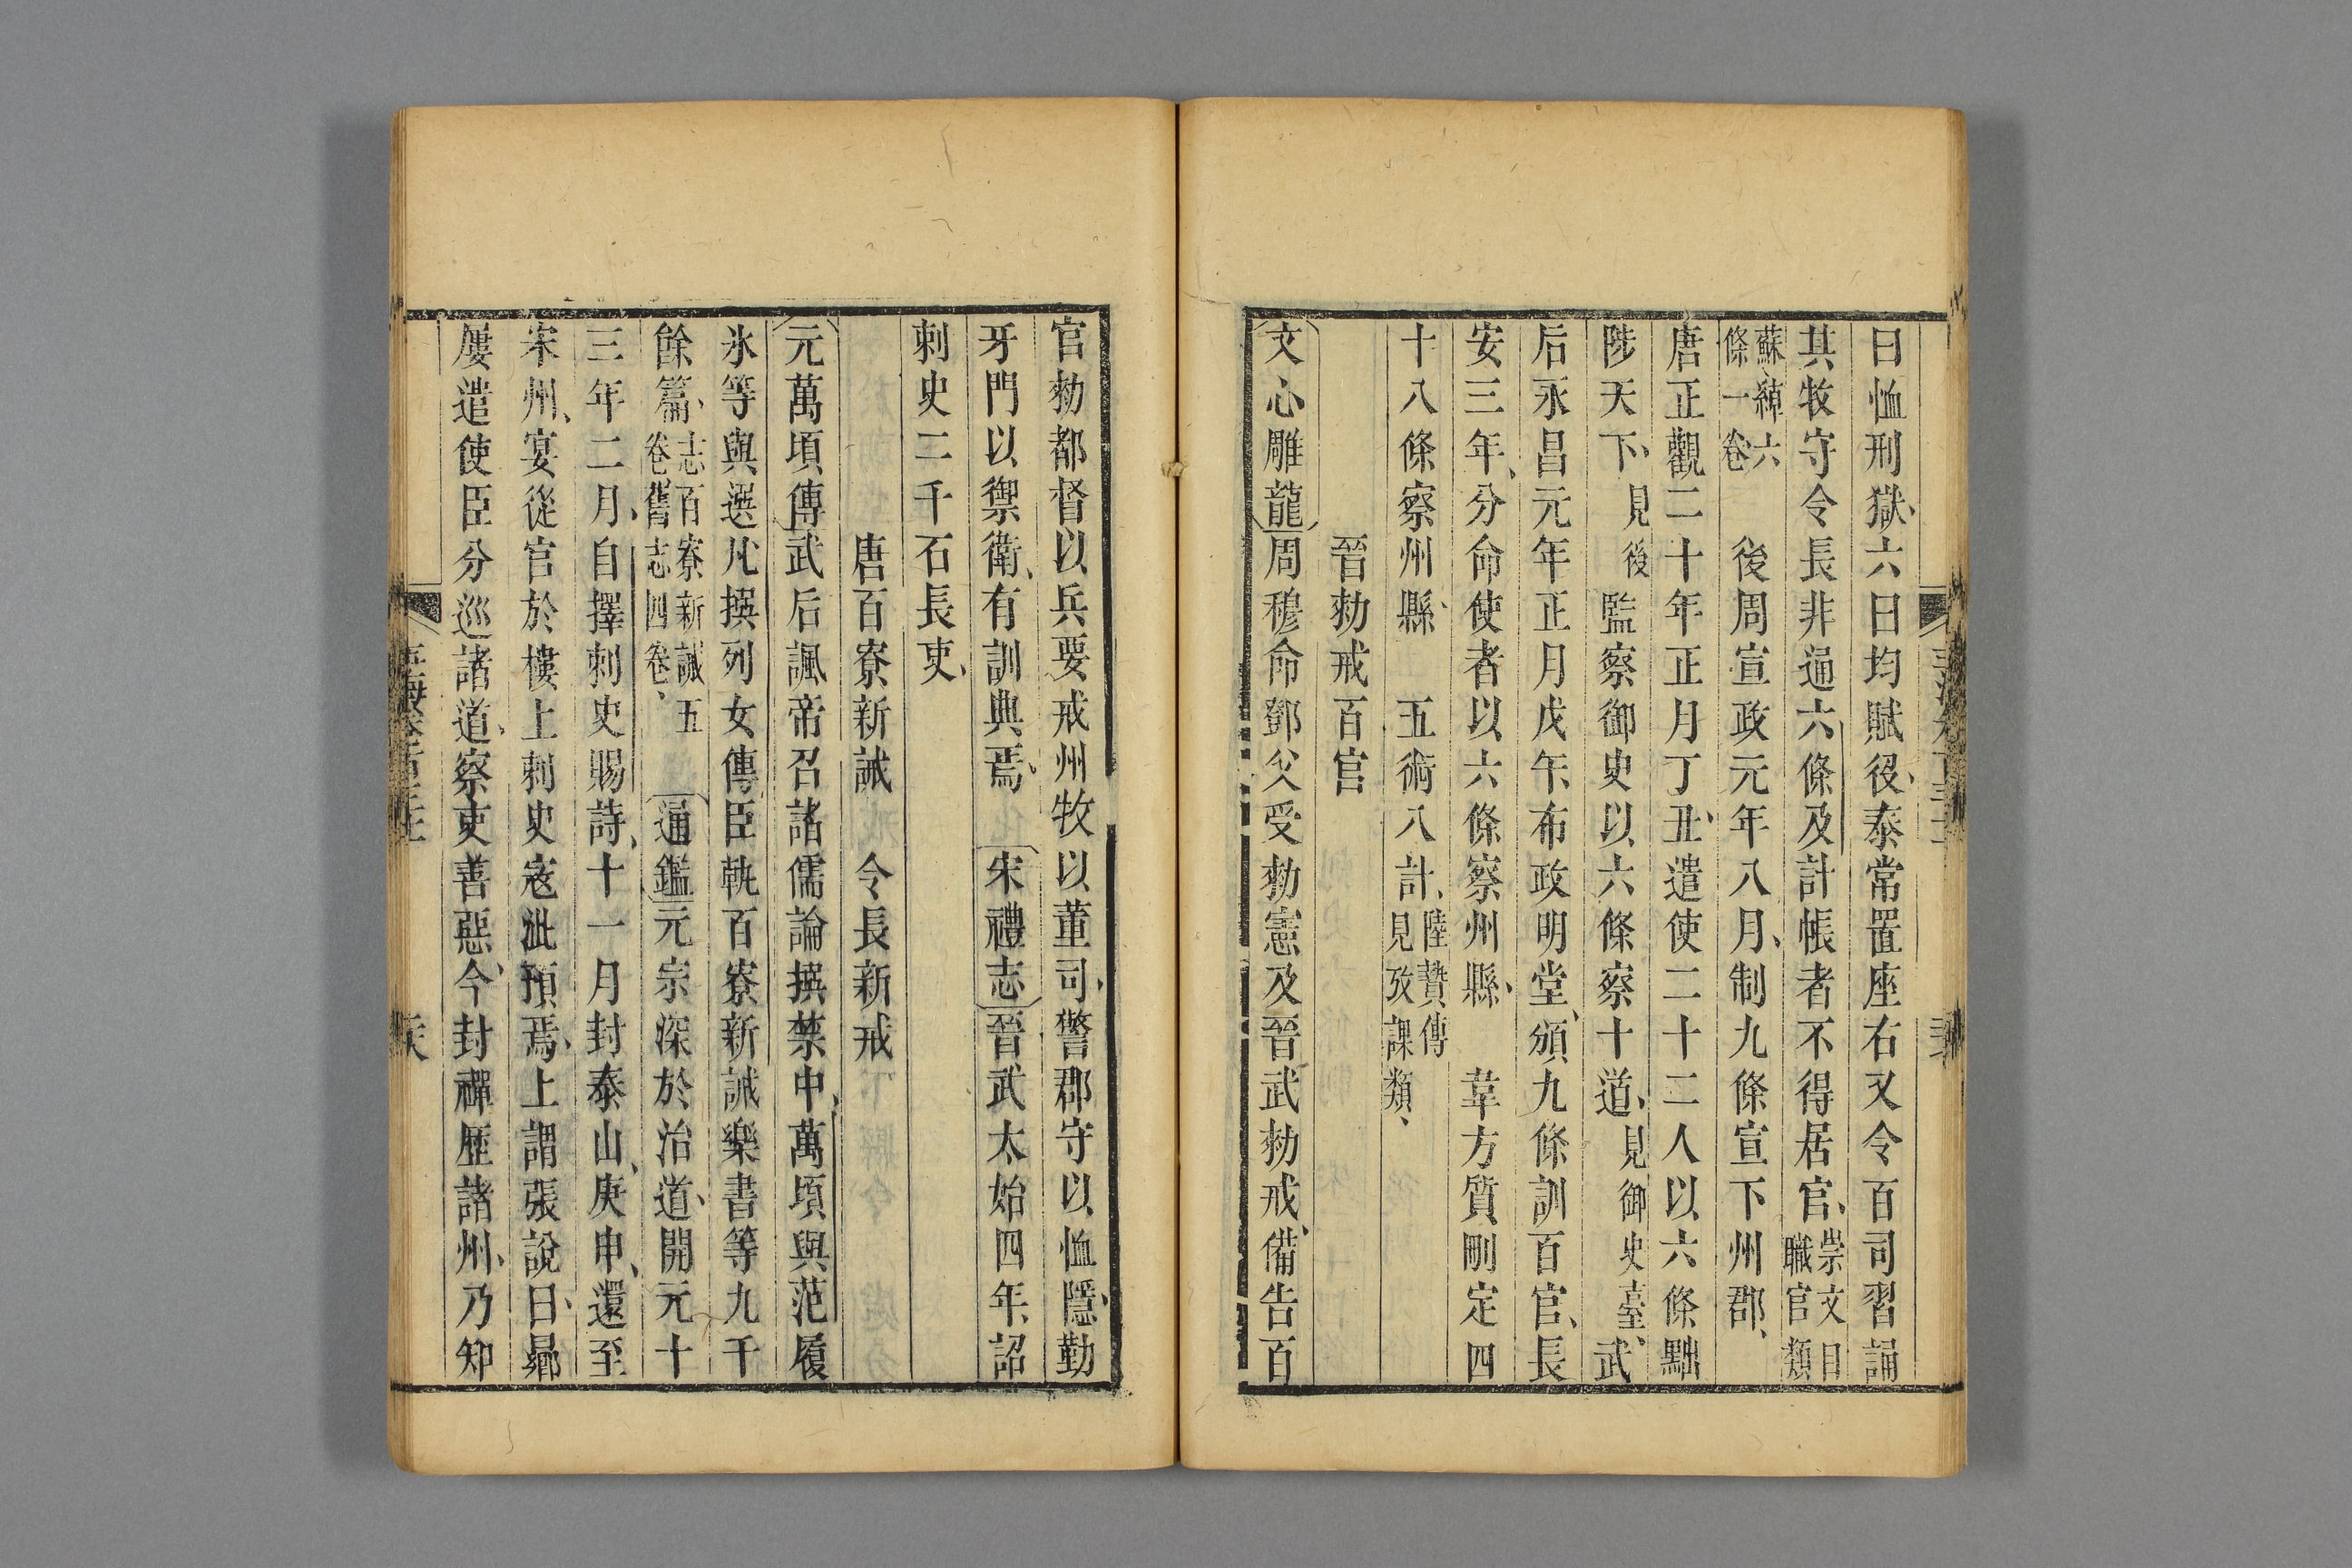 曰恤刑獄、六曰均賦役、泰常置座右又令百司習誦
其牧守令長非通六條及計帳者不得居官、崇文目職官類
蘇綽六條一卷 後周宣政元年八月、制九條宣下州郡、
唐正觀二十年正月丁丑、遣使二十二人以六條黜
陟天下、見後 監察御史以六條察十道、見御史臺、武
后永昌元年正月戊午、布政明堂、頒九條訓百官、長
安三年、分命使者以六條察州縣、 韋方質刪定四
十八條察州縣、 五術八計、陸贄傳見攷課類、
晉勑戒百官
文心雕龍周穆命鄧父受勑憲及晉武勑戒、備告百
官勑都督以兵要戒州牧以董司、警郡守以恤隱、勤
牙門以禦衛、有訓典焉、 宋禮志晉武太始四年、詔
刺史二千石長吏、
唐百寮新誡 令長新戒
元萬頃傳武后諷帝召諸儒論撰禁中、萬頃與范履
氷等與選凡撰列女傳臣軌百寮新誡樂書等九千
餘篇、志百寮新誡五卷、舊志四卷、 通鑑元宗深於治道、開元十
三年二月、自擇刺史賜詩、十一月封泰山、庚申、還至
宋州、宴從官於樓上刺史寇泚預焉、上謂張說曰、曏
屢遣使臣分巡諸道、察吏善惡、今封禪歷諸州、乃知